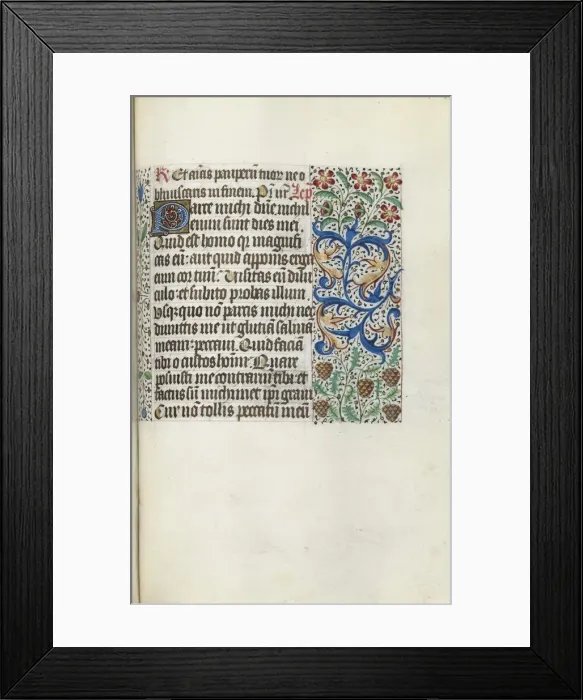 R Et aīas paūperū tuoꝝ ne o
bliuiscaris in finem. Pr̄ nr̄ Lep
Parce michi dūe nichil
enim sunt dies mei
Quid est homo qͥ magnifi
cas eū: aut quid apponis erga
eum cor tuū. Visitas eū dilu
culo: et subito probas illum
vsqꝫ quo nō parcis michi nec
dimittis me ut glutiā saliuā
meam: peccaui. Quid faciā
tibi o custos homīꝫ: Quare
posuisti me contrariū tibi: et
factus sū michimet ipī grauis
Cur nō tollis peccatū meū